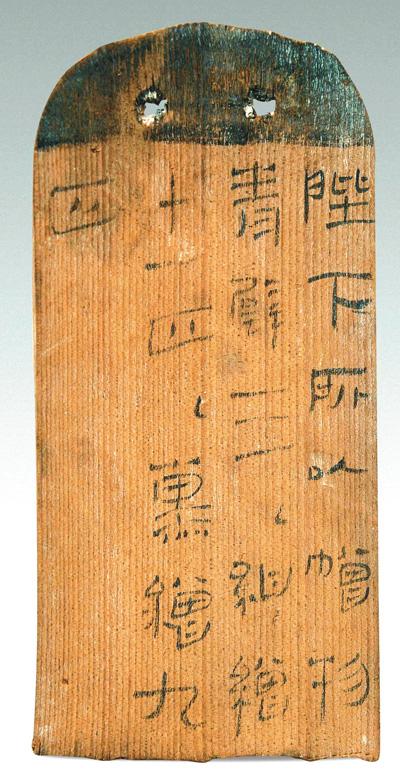 陛下所以贈物
青璧三、紺繒
十一匹、薰繒九
匹